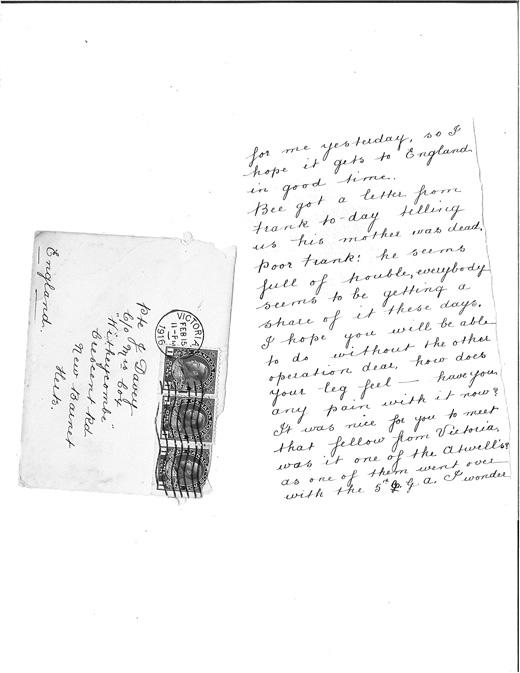 for me yesterday, so I
hope it gets to England
in good time.
Bee got a letter from
Frank to-day telling
us his mother was dead,
poor Frank! he seems
full of trouble, everybody
seems to be getting a
share of it these days.
I hope you will be able
to do without the other
operation dear, how does
your leg feel — have you
any pain with it now?
It was nice for you to meet
that fellow from Victoria,
was it one of the Atwell's?
as one of them went over
with the 5th G. A. I wonder
Pte J. Davey
C/o Mrs Cox
"Hipheycombe"
Crescent Rd
New Barnet
Herts.
England.
VICTORIA
FEB 15
11-PM
1916